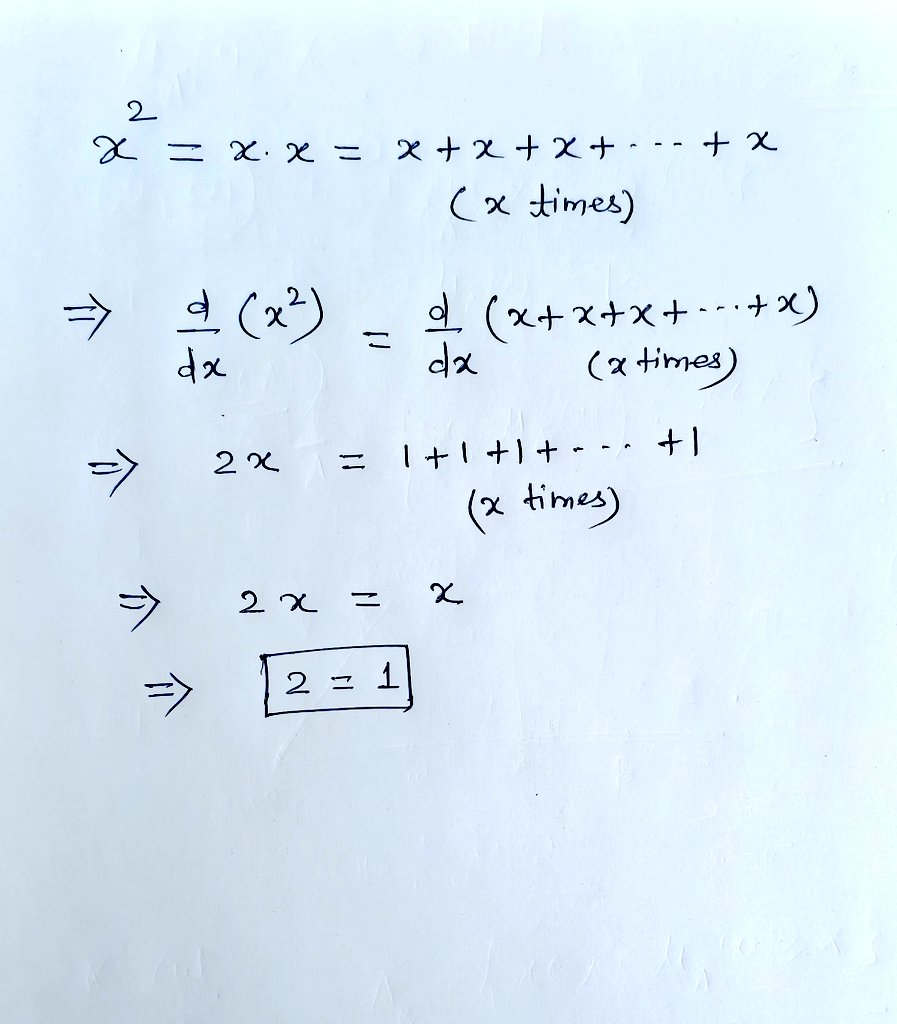 x² = x. x = x + x + x + ---- + x
(x times)
⇒ d/dx (x²) = d/dx (x + x + x + ---- + x)
(x times)
⇒ 2x = 1 + 1 + 1 + ---- + 1
(x times)
⇒ 2x = x
⇒ 2 = 1